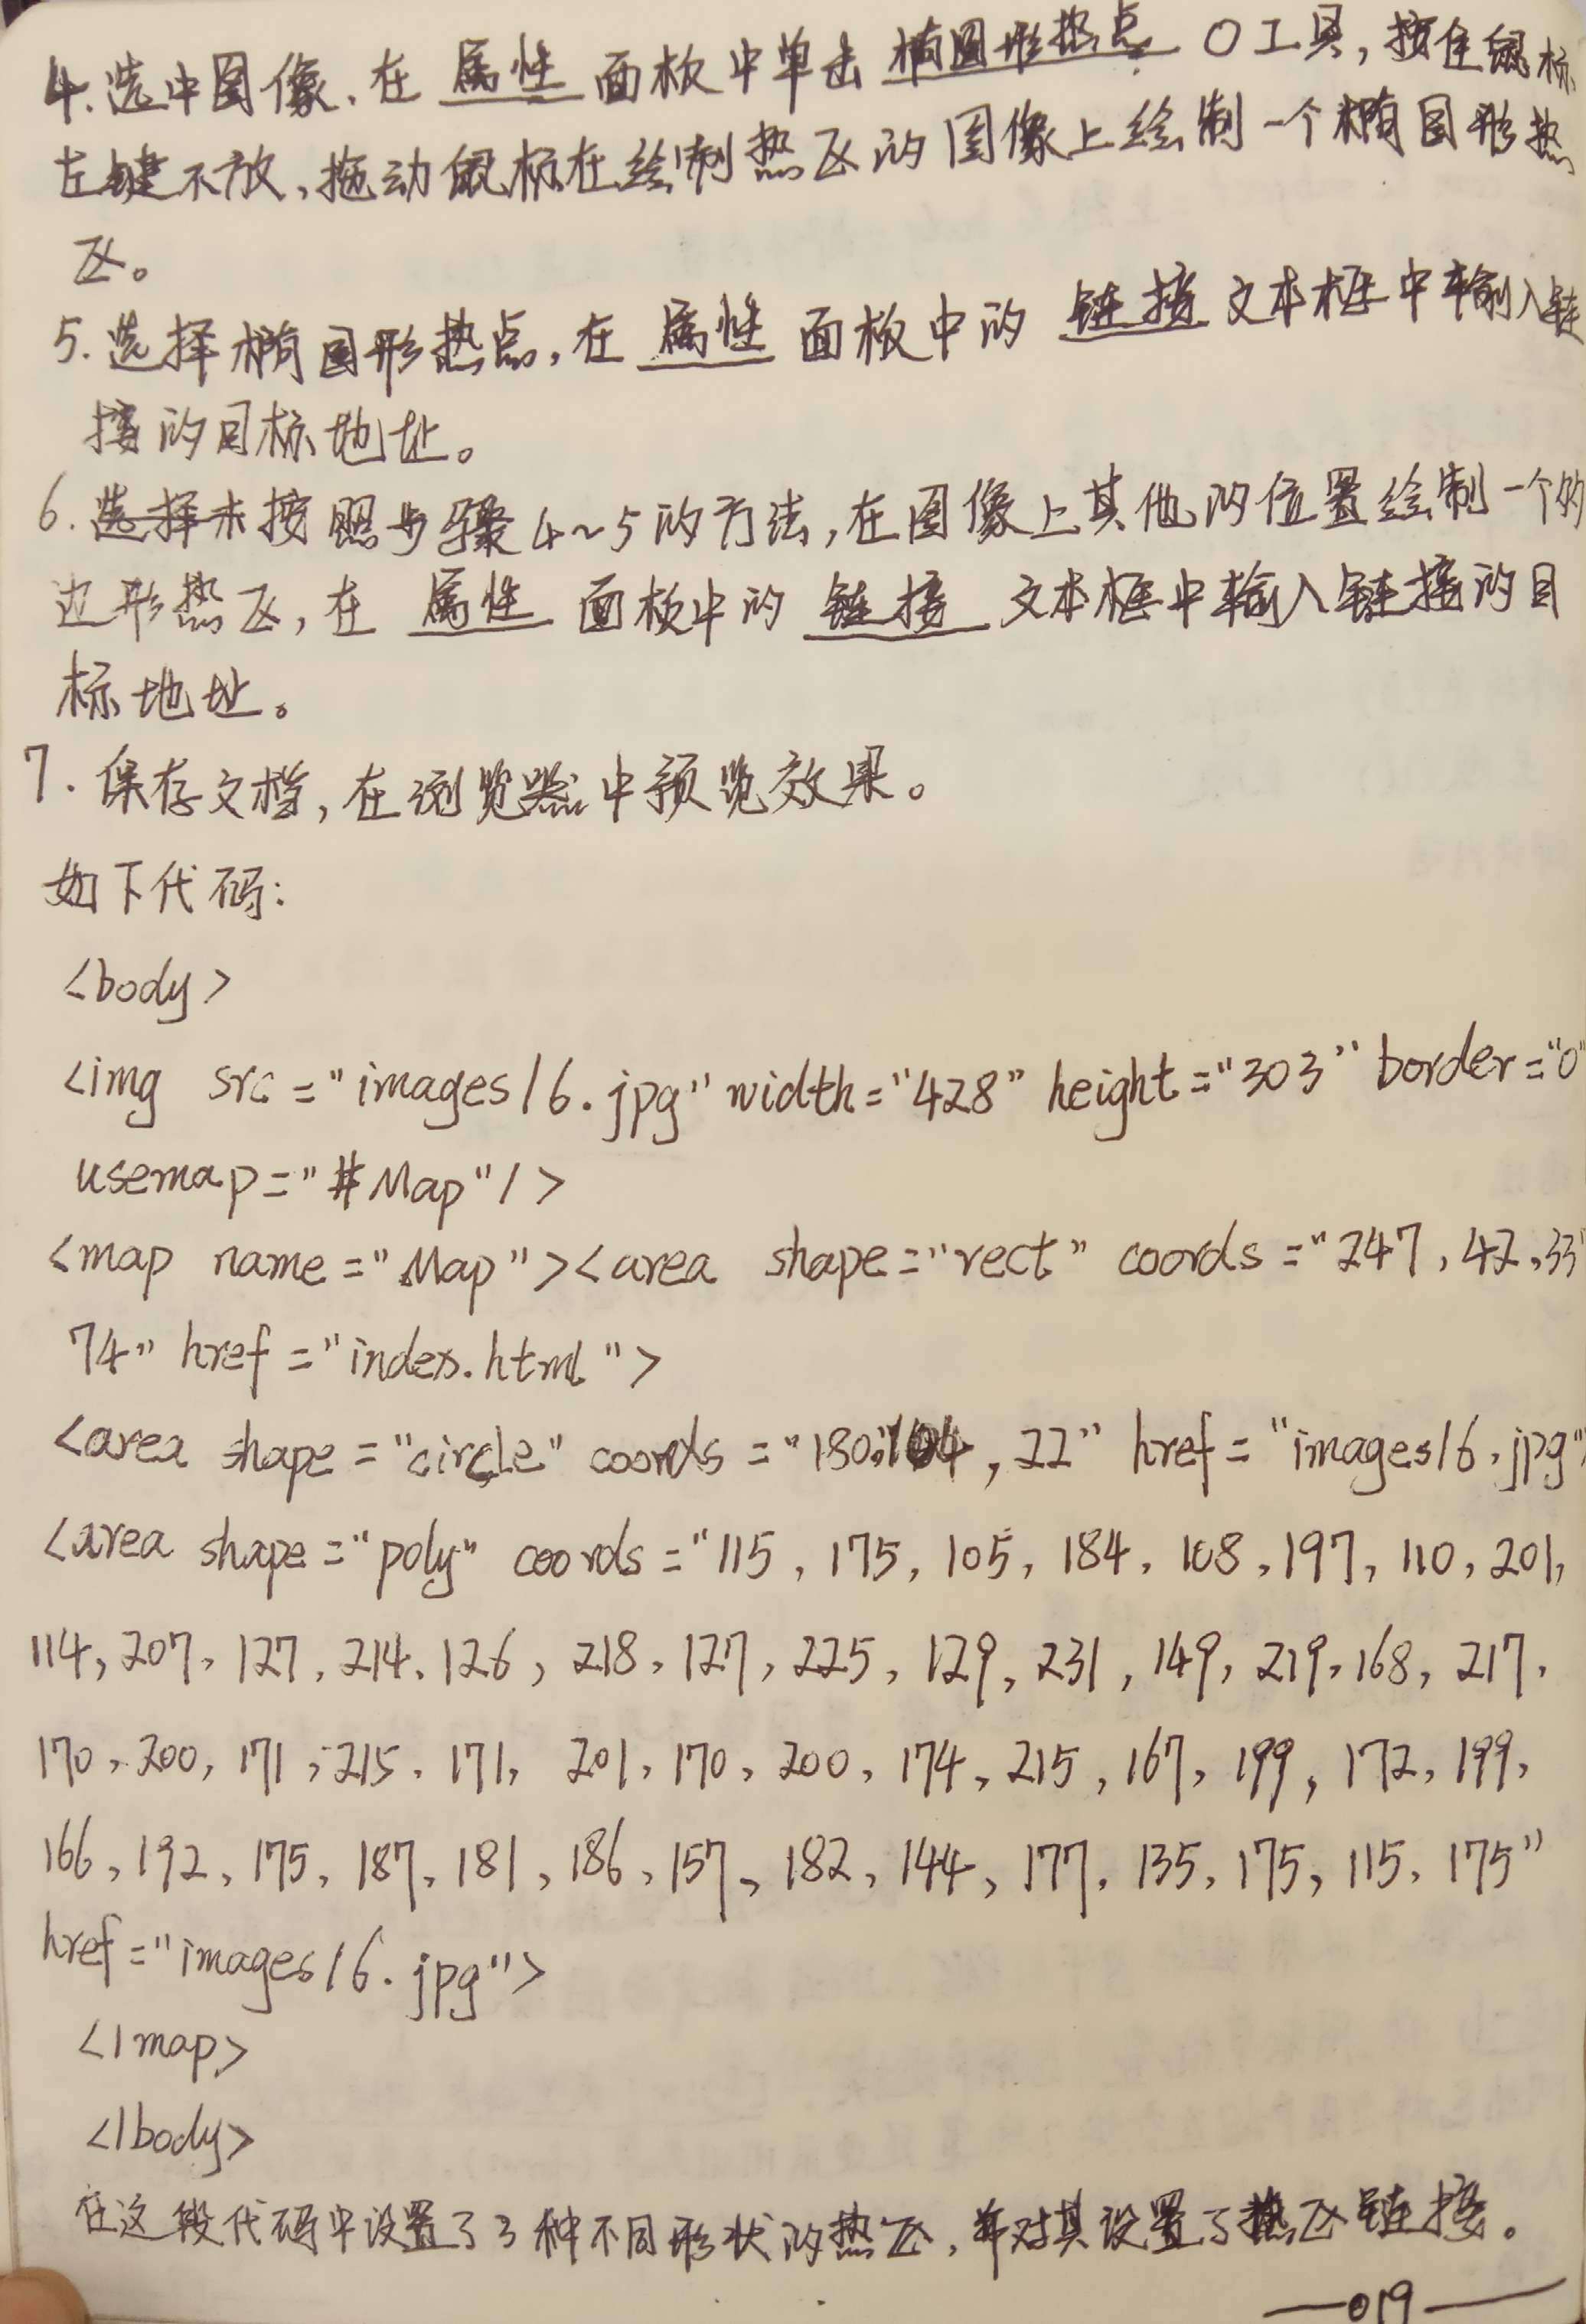 4.选中图像、在 属性 面板中单击 椭圆形热点 〇工具,按住鼠标
左键不放、拖动鼠标在绘制热区的图像上绘制一个椭圆形热
区。
5.选择椭圆形热点,在 属性 面板中的 链接 文本框中输入链
接的目标地址。
6.按照步骤4~5的方法,在图像上其他的位置绘制一个
边形热区,在 属性 面板中的 链接 文本框中输入链接的目
标地址。
7.保存文档,在浏览器中预览效果。
如下代码:
<body>
<img src="images/6.jpg" width="428" height="303" border="0"
usemap="#Map"/>
<map name="Map"><area shape="rect" coords="247,42,33
74" href="index.html">
<area shape="circle" coords="180,104,22" href="images/6.jpg"
<area shape="poly" coords="115,175,105,184,108,197,110,201,
114,207,127,214,126,218,127,225,129,231,149,219,168,217,
170,200,171,215,171,201,170,200,174,215,167,199,172,199,
166,192,175,187,181,186,157,182,144,177,135,175,115,175"
href="images/6.jpg">
</map>
</body>
在这段代码中设置了3种不同形状的热区,并对其设置了热区链接。
—019—